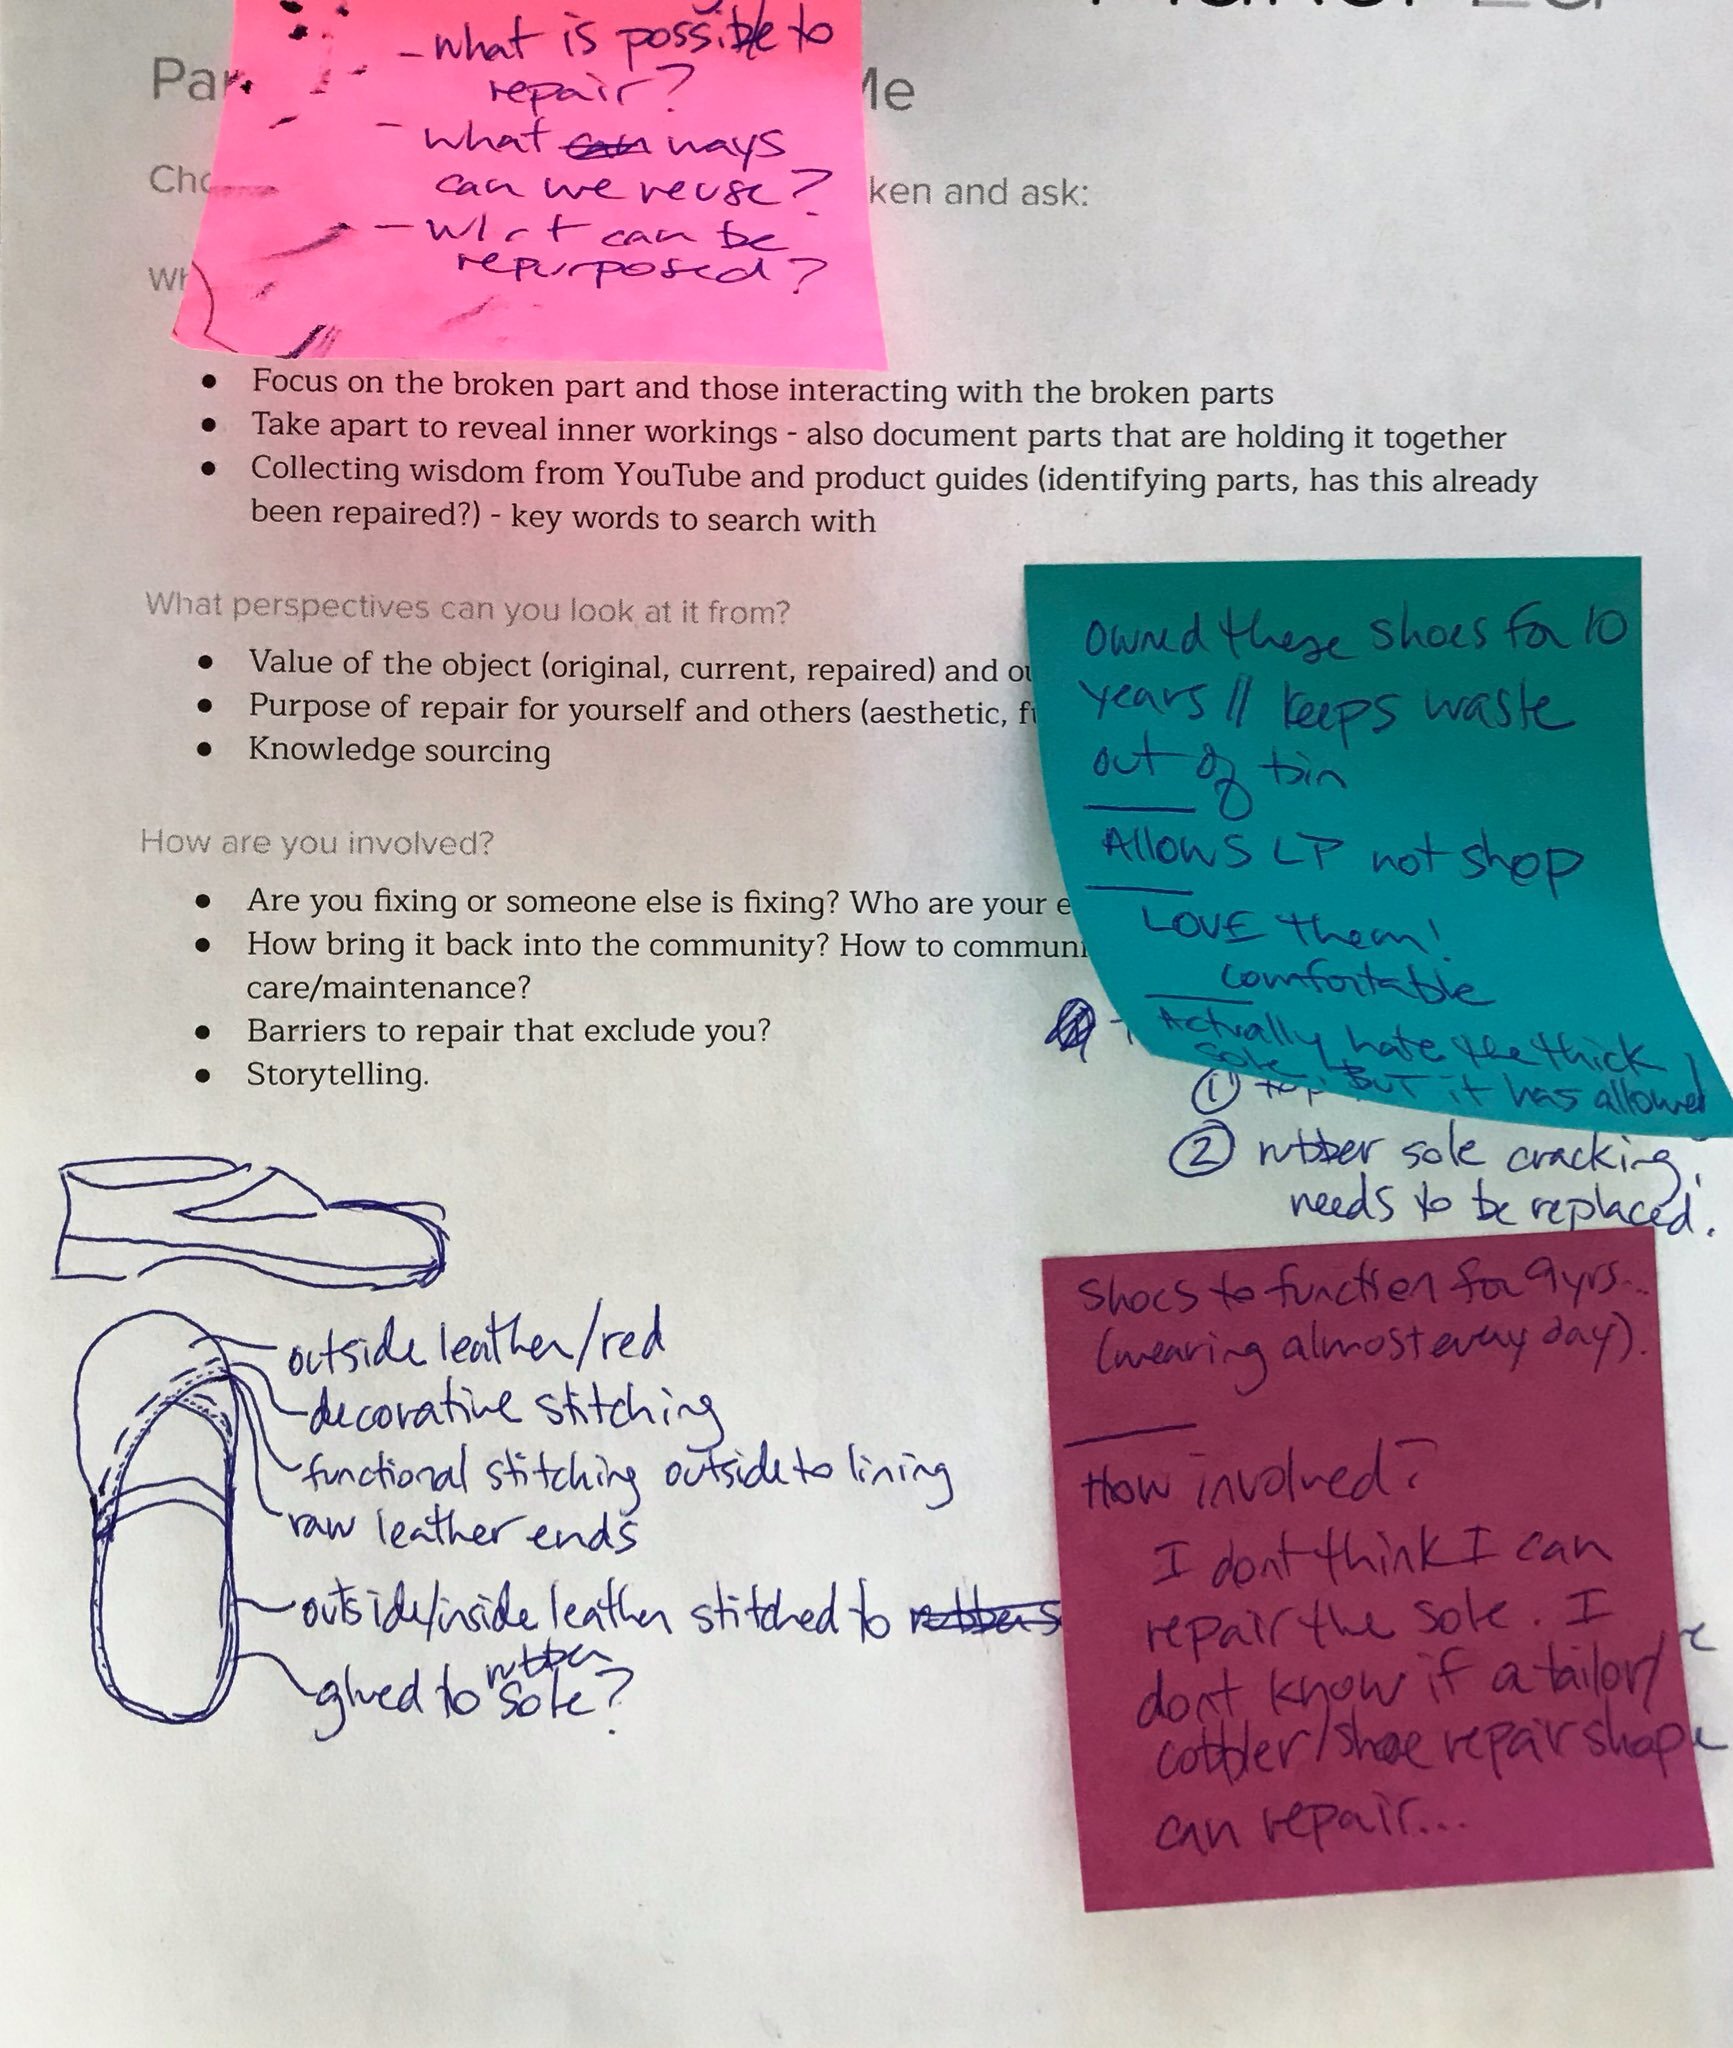 - what is possible to
repair?
- what ways
can we reuse?
- what can be
repurposed?
ken and ask:
• Focus on the broken part and those interacting with the broken parts
• Take apart to reveal inner workings - also document parts that are holding it together
• Collecting wisdom from YouTube and product guides (identifying parts, has this already
been repaired?) - key words to search with
What perspectives can you look at it from?
• Value of the object (original, current, repaired) and
• Purpose of repair for yourself and others (aesthetic,
• Knowledge sourcing
How are you involved?
• Are you fixing or someone else is fixing? Who are your
• How bring it back into the community? How to communi
care/maintenance?
• Barriers to repair that exclude you?
• Storytelling.
owned these shoes for 10
years // keeps waste
out of bin
Allows LP not shop
LOVE them!
comfortable
Actually hate the thick
sole, BUT it has allowed
① top
② rubber sole cracking,
needs to be replaced.
shoes to function for 9 yrs...
(wearing almost every day).
How involved?
I dont think I can
repair the sole. I
dont know if a tailor/
cobbler/shoe repair shop
can repair...
outside leather/red
decorative stitching
functional stitching outside to lining
raw leather ends
outside/inside leather stitched to
glued to rubber sole?